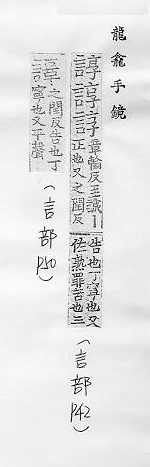 龍龕手鏡
章輪反至誠丨
正也又之閏反
告也丁寧也又
佐熟罪苦也三
(言部 P42)
之閏反告也丁
寧也又平聲
(言部 P50)